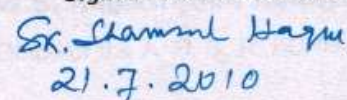 Sk. Shamsul Haque
21.7.2010